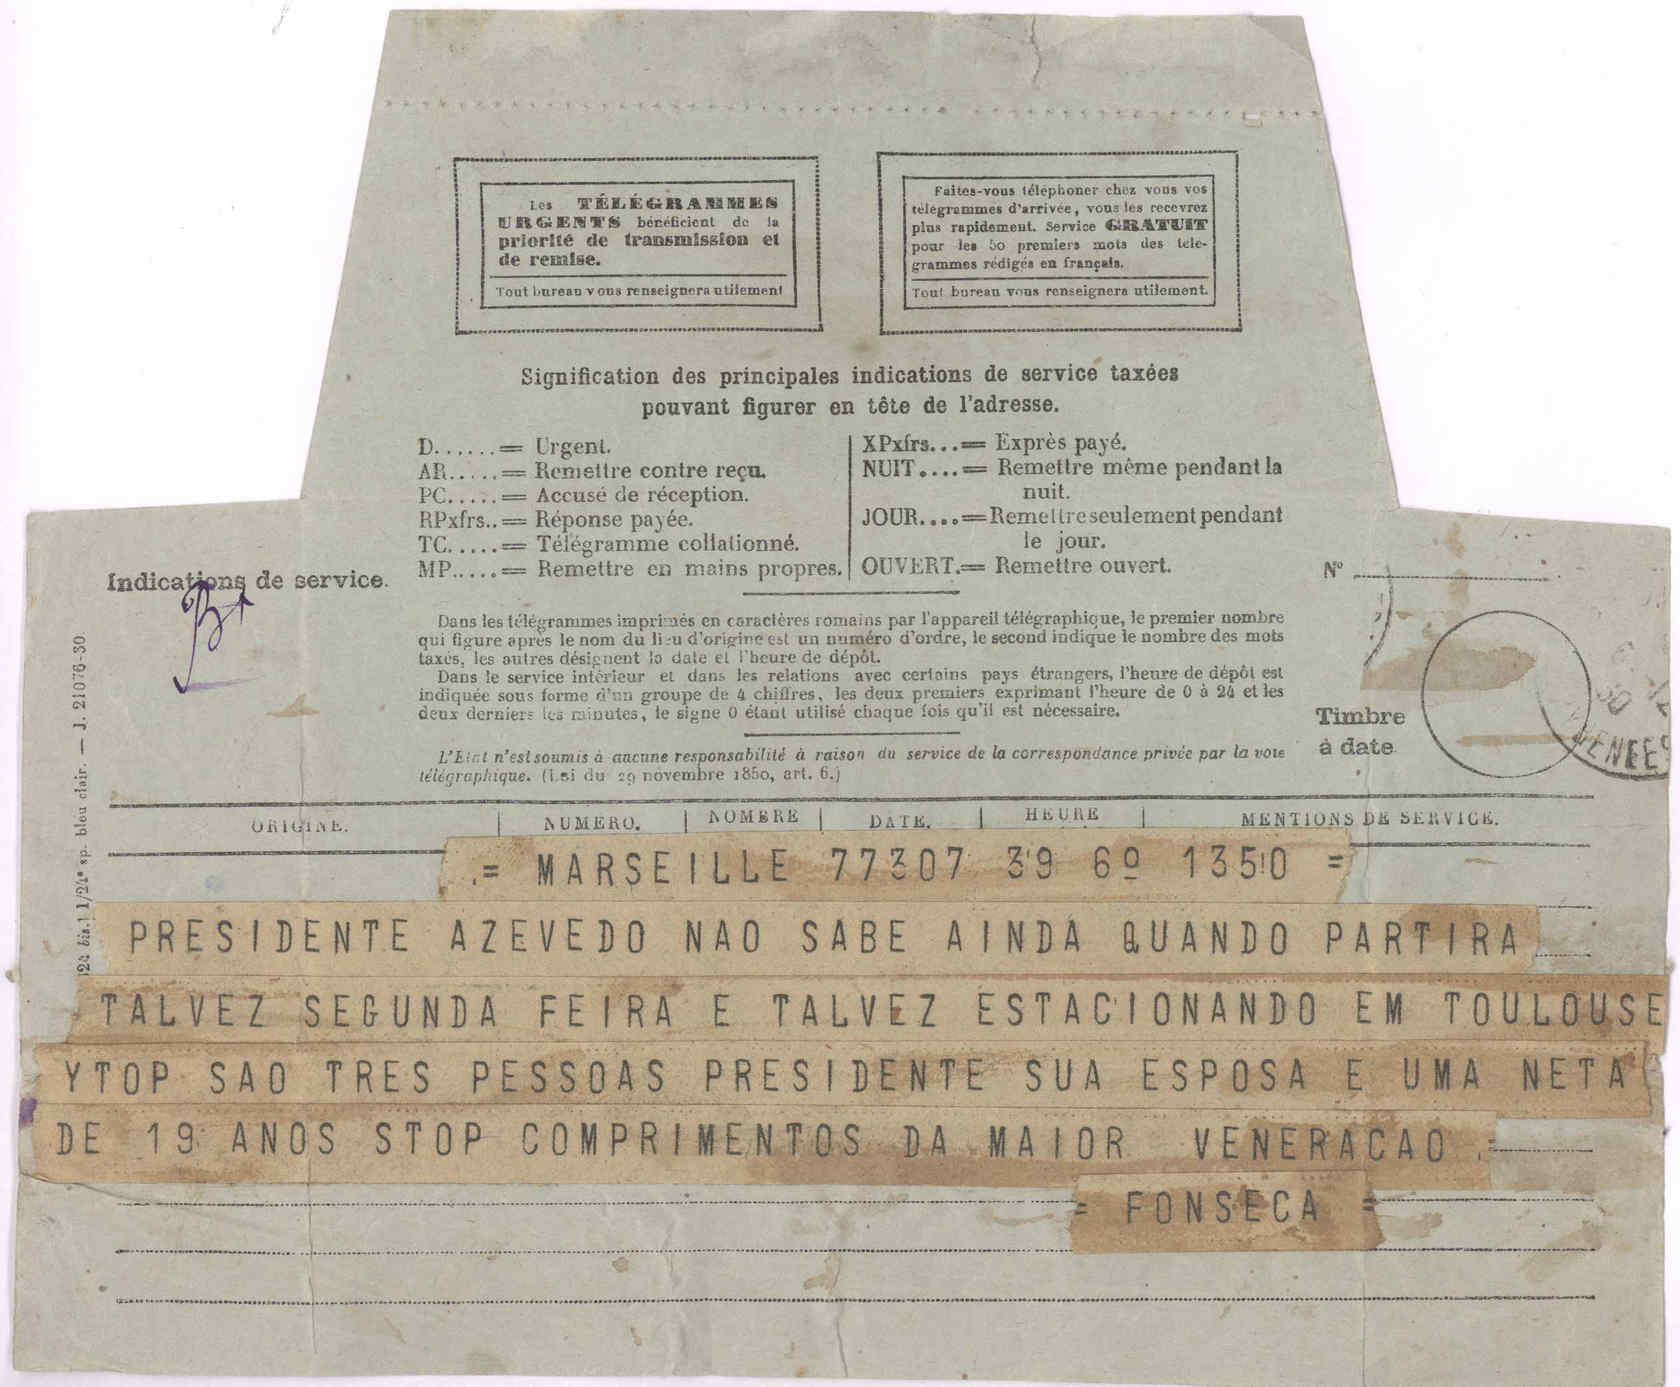 Les TÉLÉGRAMMES
URGENTS bénéficient de la
priorité de transmission et
de remise.
Tout bureau vous renseignera utilement
Faites-vous téléphoner chez vous vos
télégrammes d'arrivée, vous les recevrez
plus rapidement. Service GRATUIT
pour les 50 premiers mots des télé-
grammes rédigés en français.
Tout bureau vous renseignera utilement.
Signification des principales indications de service taxées
pouvant figurer en tête de l'adresse.
D......= Urgent.
AR.....= Remettre contre reçu.
PC.....= Accusé de réception.
RPxfrs..= Réponse payée.
TC.....= Télégramme collationné.
MP.....= Remettre en mains propres.
XPxfrs...= Exprès payé.
NUIT....= Remettre même pendant la
nuit.
JOUR....=Remettre seulement pendant
le jour.
OUVERT.= Remettre ouvert.
Indications de service.
Nº
Dans les télégrammes imprimés en caractères romains par l'appareil télégraphique, le premier nombre
qui figure après le nom du lieu d'origine est un numéro d'ordre, le second indique le nombre des mots
taxés, les autres désignent la date et l'heure de dépôt.
Dans le service intérieur et dans les relations avec certains pays étrangers, l'heure de dépôt est
indiquée sous forme d'un groupe de 4 chiffres, les deux premiers exprimant l'heure de 0 à 24 et les
deux derniers les minutes, le signe 0 étant utilisé chaque fois qu'il est nécessaire.
Timbre
à date
L'Etat n'est soumis à aucune responsabilité à raison du service de la correspondance privée par la voie
télégraphique. (Loi du 29 novembre 1850, art. 6.)
J. 21076-30
ORIGINE. NUMÉRO. NOMBRE DATE. HEURE MENTIONS DE SERVICE.
= MARSEILLE 77307 39 6º 1350 =
PRESIDENTE AZEVEDO NAO SABE AINDA QUANDO PARTIRA
TALVEZ SEGUNDA FEIRA E TALVEZ ESTACIONANDO EM TOULOUSE
YTOP SAO TRES PESSOAS PRESIDENTE SUA ESPOSA E UMA NETA
DE 19 ANOS STOP COMPRIMENTOS DA MAIOR VENERACAO =
= FONSECA =